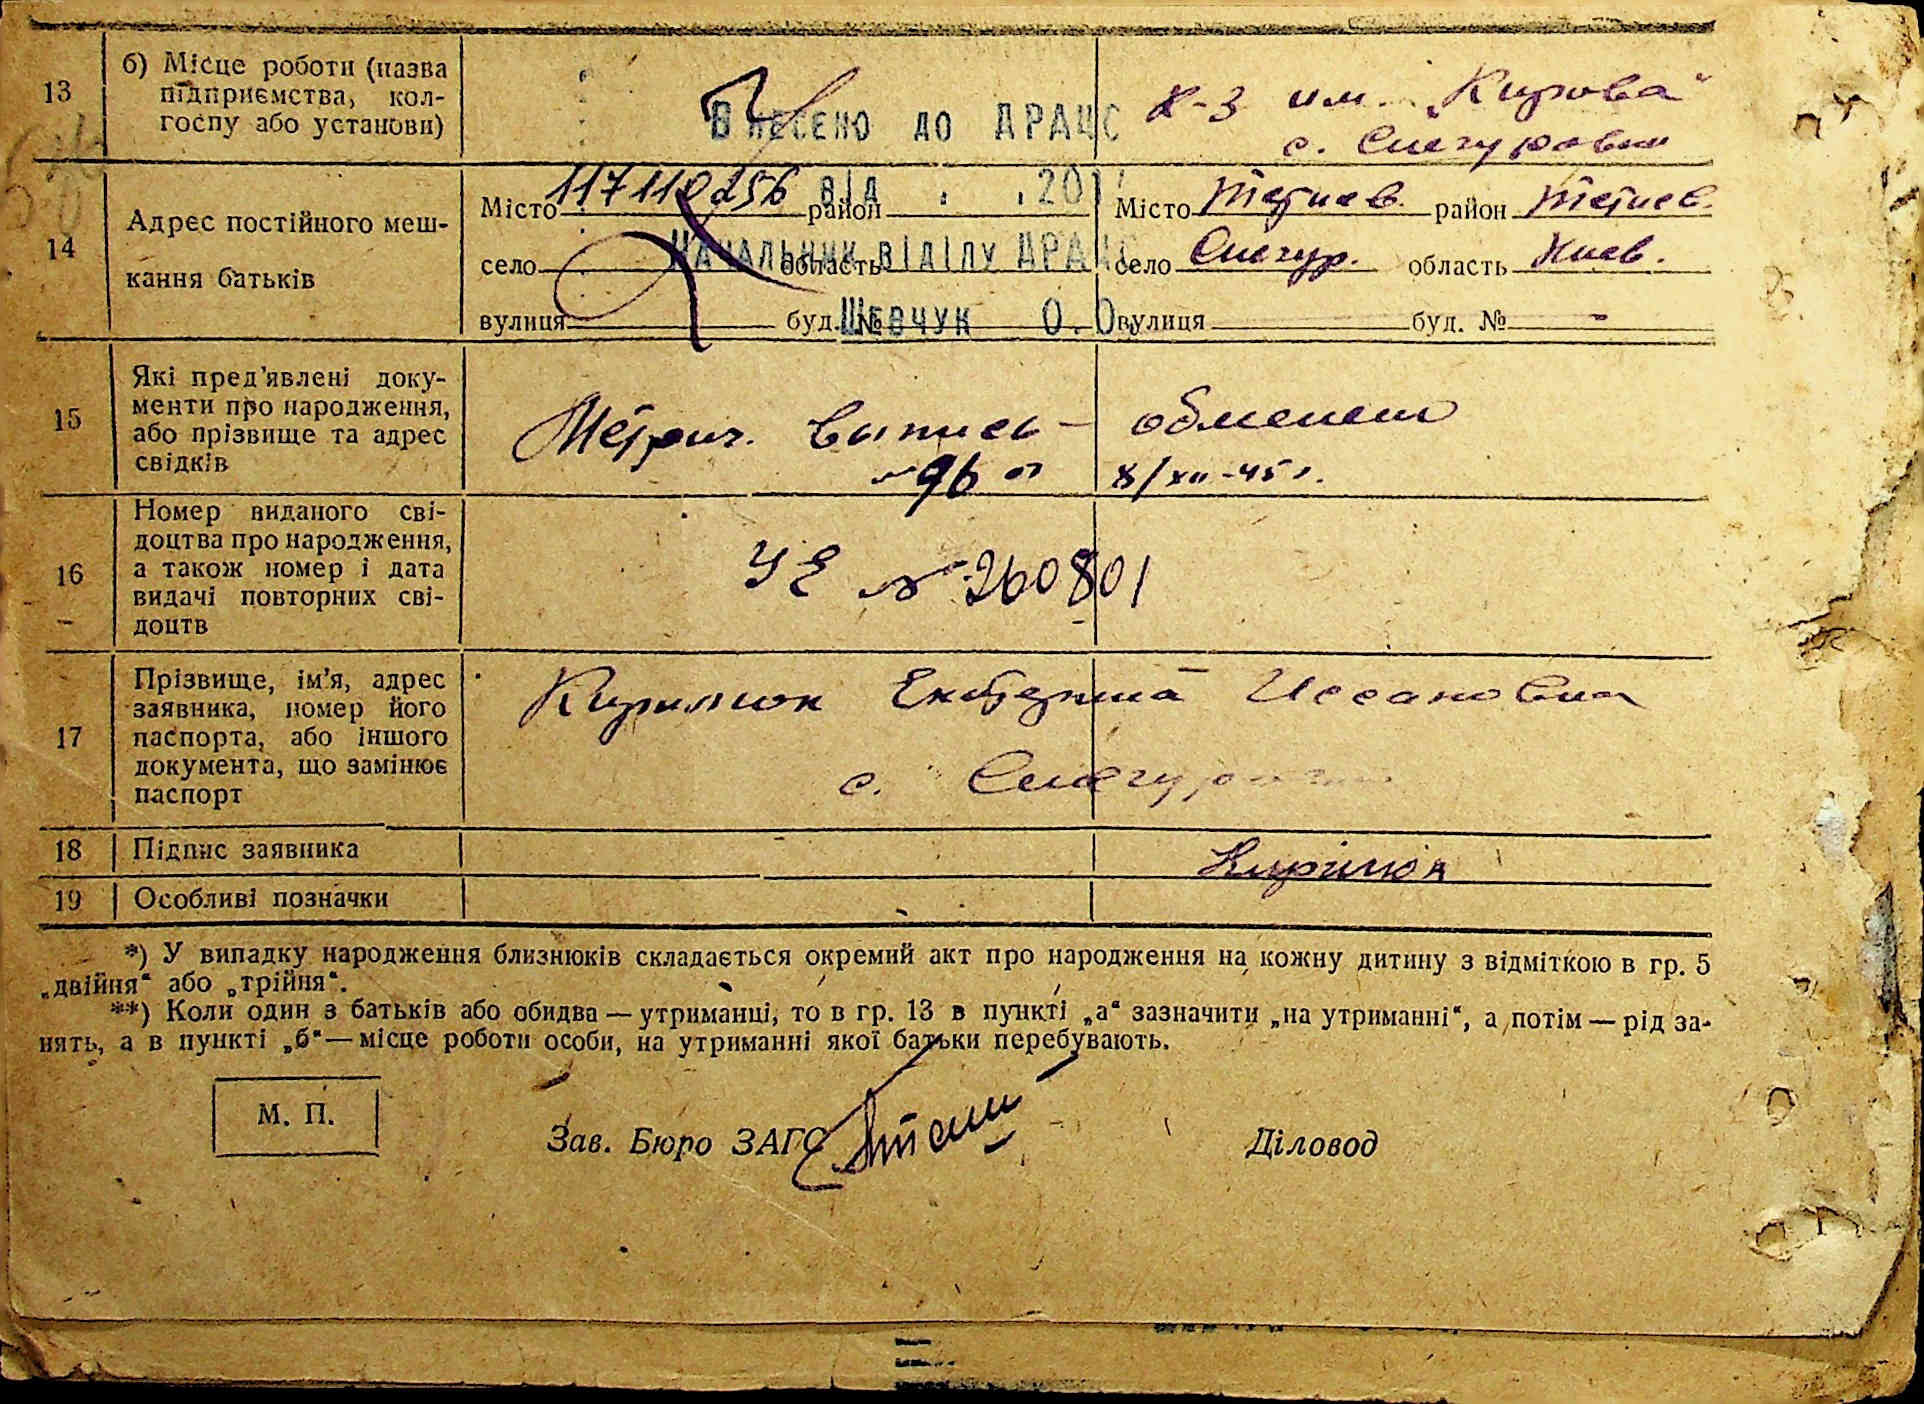 13
б) Місце роботи (назва
підприємства, кол-
госпу або установи)
Внесено до ДРАЦС
к-з им. „Кирова“
с. Снегуровки
14
Адрес постійного меш-
кання батьків
Місто 117110256 район
від . . 201
село область
Начальник відділу ДРАЦС
вулиця буд. №
Шевчук О. О.
Місто Тетиев. район Тетиев.
село Снегур. область Киев.
вулиця буд. № -
15
Які пред'явлені доку-
менти про народження,
або прізвище та адрес
свідків
Метрич. выпись - обменен
№ 96 от 8/XII-45 г.
16
Номер виданого сві-
доцтва про народження,
а також номер і дата
видачі повторних сві-
доцтв
УЕ № 260801
17
Прізвище, ім'я, адрес
заявника, номер його
паспорта, або іншого
документа, що замінює
паспорт
Кирилюк
с. Снегуровки
18
Підпис заявника
Кирилюк
19
Особливі позначки
*) У випадку народження близнюків складається окремий акт про народження на кожну дитину з відміткою в гр. 5
„двійня“ або „трійня“.
**) Коли один з батьків або обидва — утриманці, то в гр. 13 в пункті „а“ зазначити „на утриманні“, а потім — рід за-
нять, а в пункті „б“ — місце роботи особи, на утриманні якої батьки перебувають.
М. П.
Зав. Бюро ЗАГС
Діловод